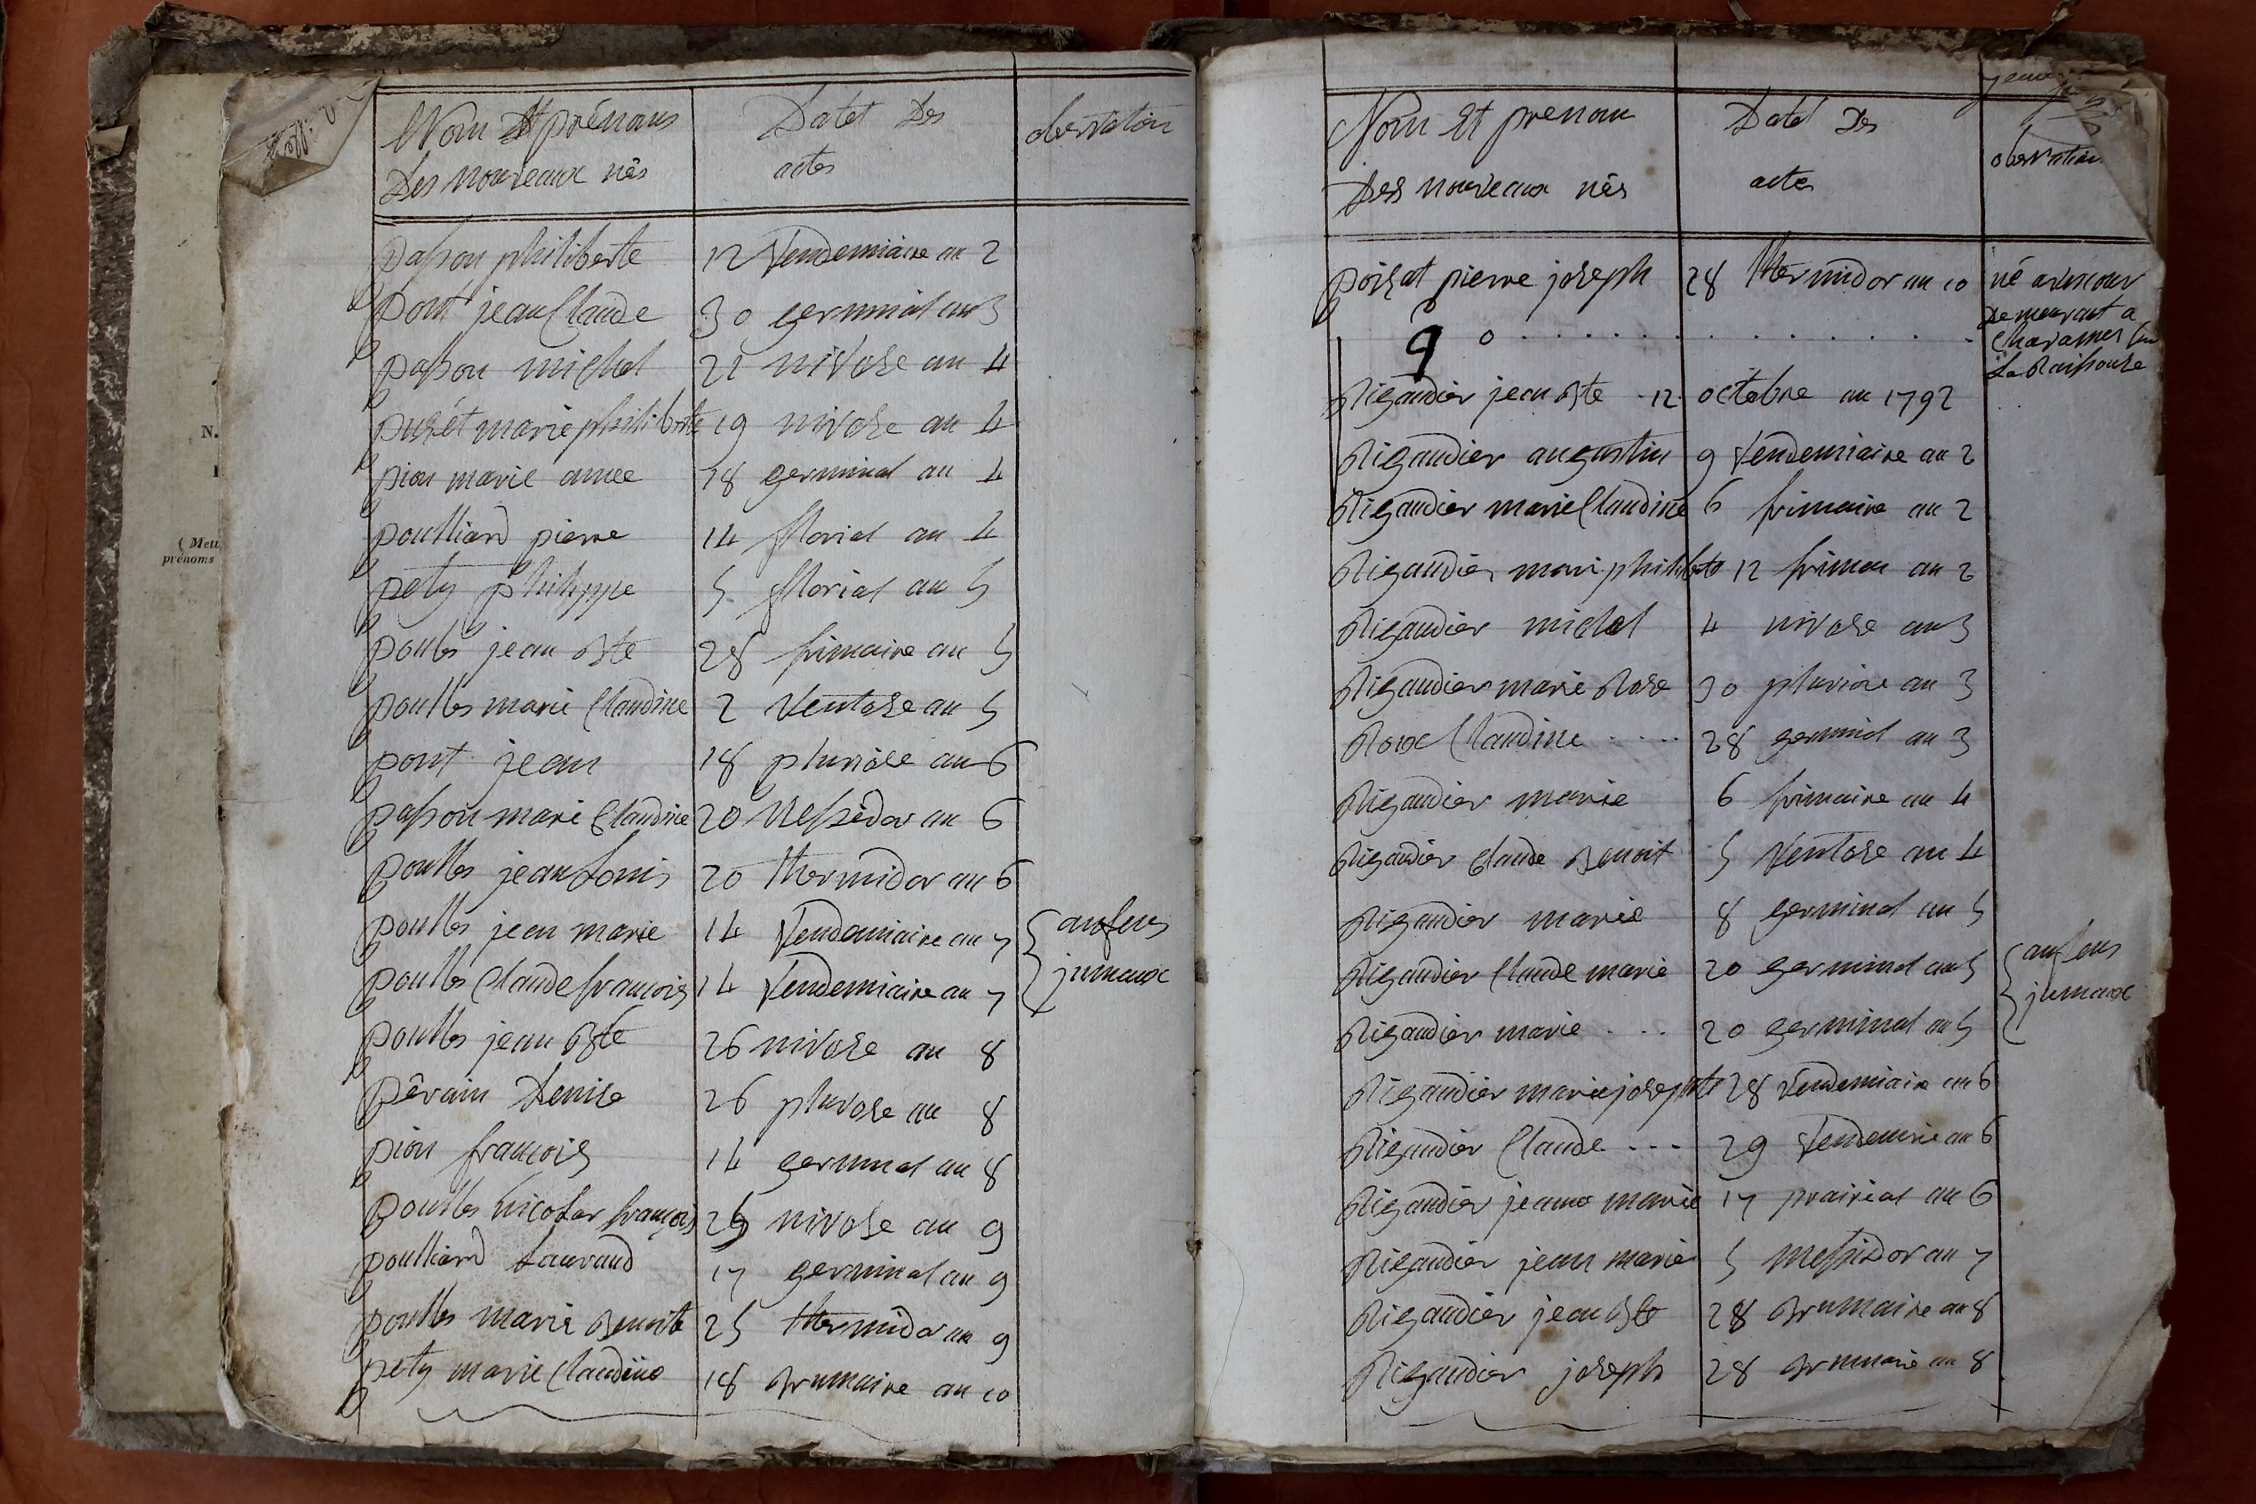 Nom Et prénoms
Des nouveaux nés
Datet Des
actes
observation
pahon philiberte 12 Vendemiaire an 2
pont jean Claude 30 germinal an 3
pahon michel 21 nivose an 4
puzét marie philiberte 19 nivose an 4
pion marie anne 28 germinal an 4
poulliard pierre 14 florial an 4
pety philippe 5 florial an 5
poulles jean Bte 28 frimaire an 5
poulles marie Claudine 2 Ventose an 5
pont jean 18 pluviose an 6
pahon marie Claudine 20 Messidor an 6
poulles jean Louis 20 thermidor an 6
poulles jean marie 14 Vendemiaire an 7 anfens
poulles Claude françois 14 Vendemiaire an 7 jumaux
poulles jean Bte 26 nivose an 8
pêrain Denise 26 pluvose an 8
pion françois 14 germinal an 8
poulles nicolas françois nivose an 9
poulliard Lauraud 17 germinal an 9
poulles marie Benoite 25 thermidor an 9
pety marie Claudine 18 Brumaire an 10
N.
( Mett
prénoms
Nom Et prenom
Des nouveaux nés
Datet Des
actes
observation
poizat pierre joseph 28 thermidor an 10 né
Demeurant a
9 0
Rigaudier jean Bte 12 octobre an 1792
Rigaudier augustin 9 Vendemiaire an 2
Rigaudier marie Claudine 6 frimaire an 2
Rigaudier mari philiberte 12 frimere an 2
Rigaudier michel 4 nivose an 3
Rigaudier marie Rose 30 pluviose an 3
Roux Claudine 28 germinal an 3
Rigaudier marie 6 frimaire an 4
Rigaudier Claude Benoit 5 Ventose an 4
Rigaudier marie 8 germinal an 5
Rigaudier Claude marie 20 germinal an 5 anfens
Rigaudier marie 20 germinal an 5 jumaux
Rigaudier marie josephte 28 Vendemiaire an 6
Rigaudier Claude 29 Vendemire an 6
Rigaudier jeanne marie 17 prairial an 6
Rigaudier jean marie 5 Messidor an 7
Rigaudier jean Bte 28 Brumaire an 8
Rigaudier joseph 28 Brumaire an 8